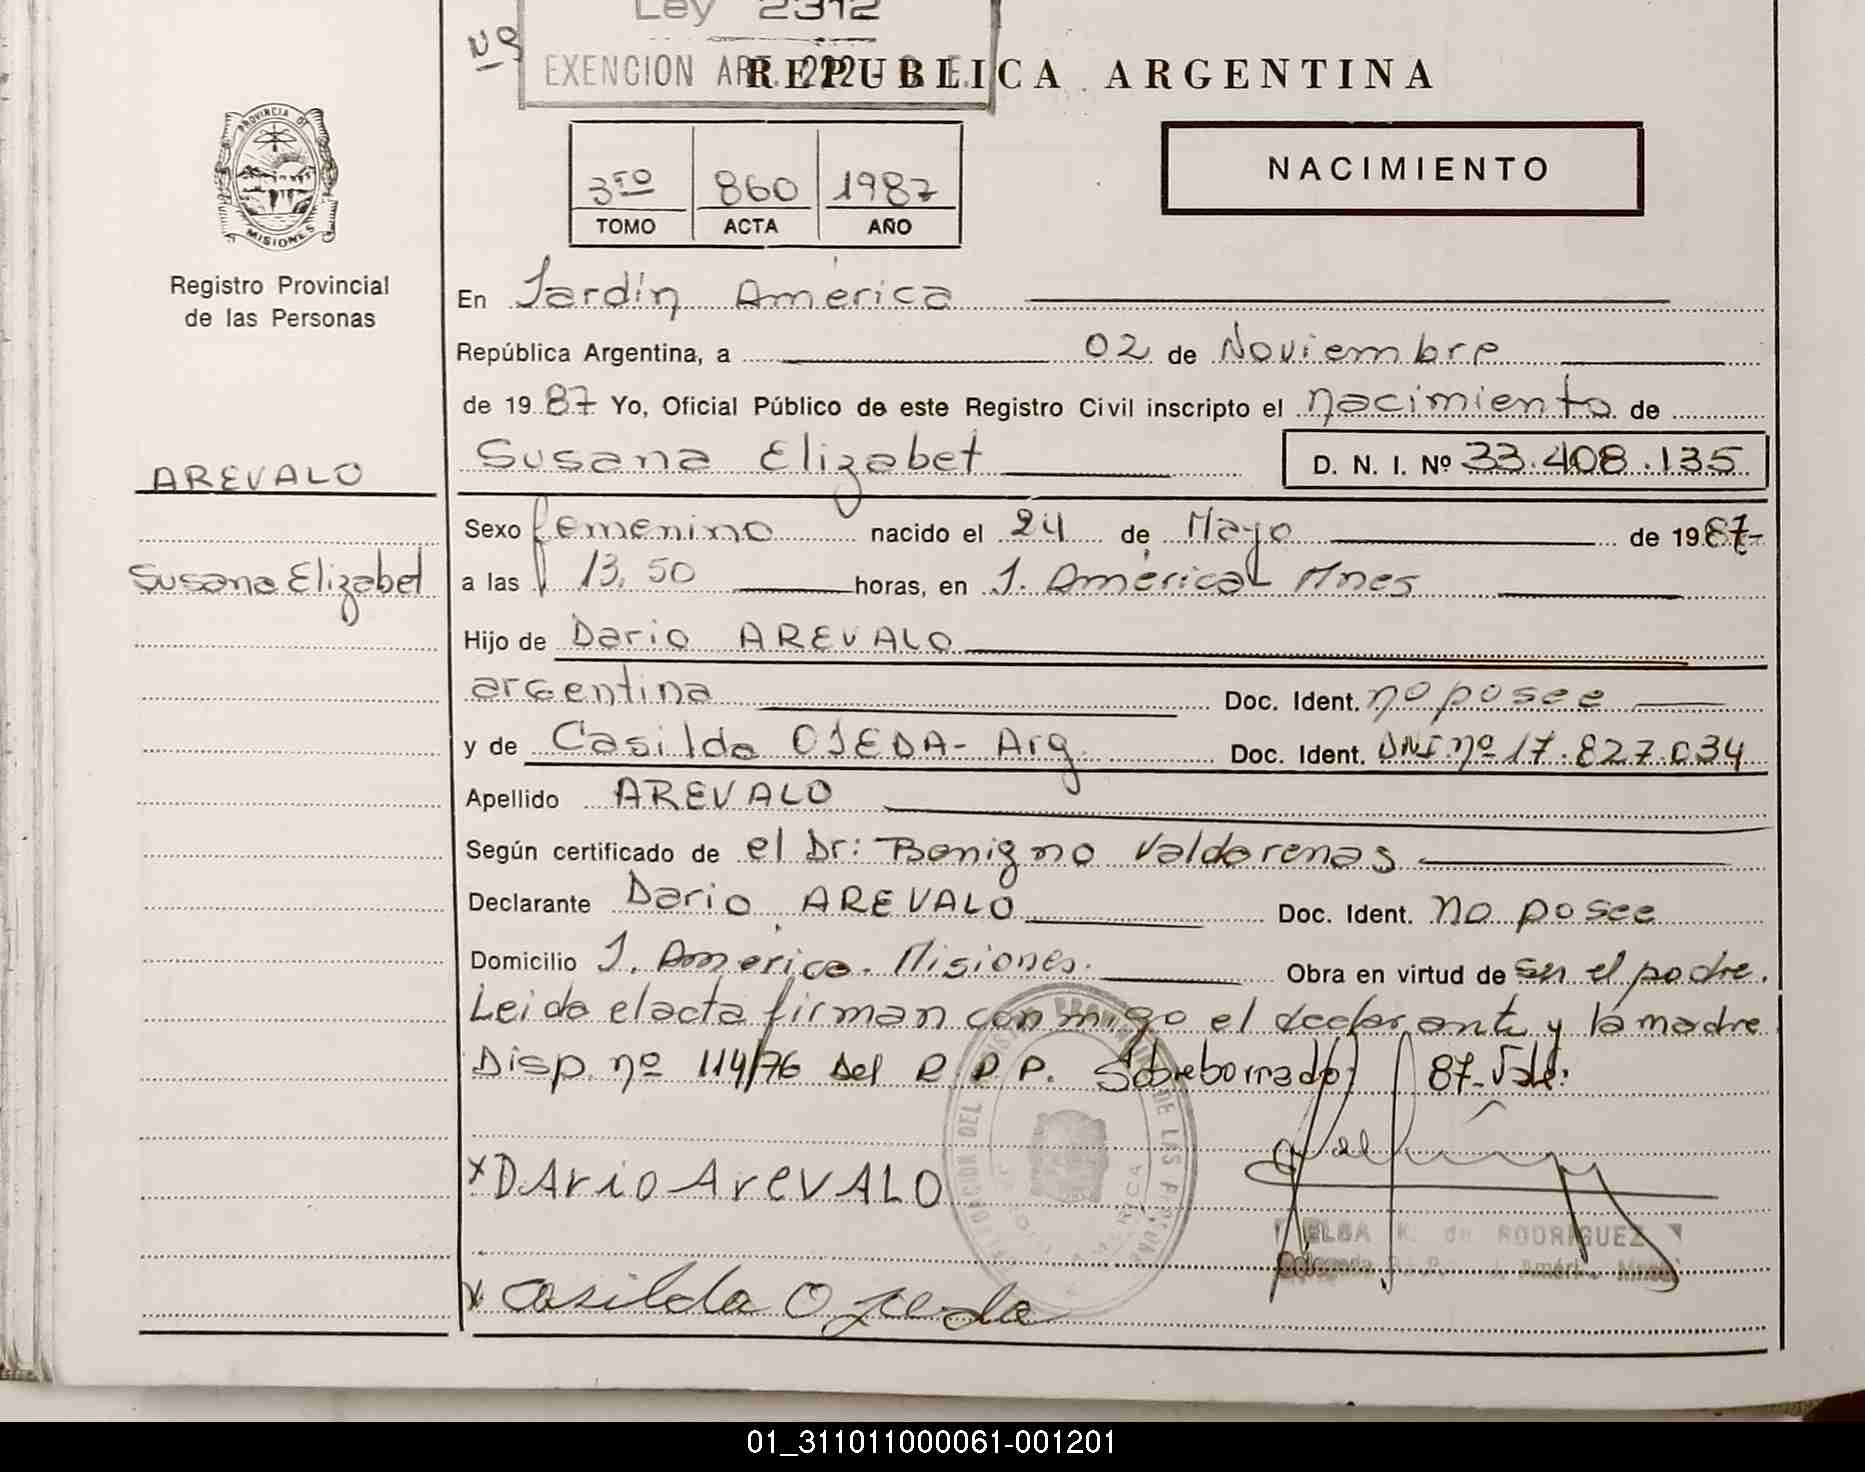 Ley 2312
Nº
EXENCION ART. 222 - C. E.
REPUBLICA ARGENTINA
PROVINCIA DE
MISIONES
Registro Provincial
de las Personas
3ro 860 1987
TOMO ACTA AÑO
NACIMIENTO
En Jardín América
República Argentina, a 02 de Noviembre
de 1987 Yo, Oficial Público de este Registro Civil inscripto el nacimiento de
AREVALO
Susana Elizabet D. N. I. Nº 33.408.135
Susana Elizabet
Sexo femenino nacido el 24 de Mayo de 1987-
a las 13,50 horas, en J. América Mnes
Hijo de Dario AREVALO
argentina Doc. Ident. no posee
y de Casilda OJEDA - Arg. Doc. Ident. DNI nº 17.827.034
Apellido AREVALO
Según certificado de el Dr: Benigno Valdarenas
Declarante Dario AREVALO Doc. Ident. no posee
Domicilio J. América. Misiones. Obra en virtud de ser el padre.
Leida el acta firman conmigo el declarante y la madre
Disp. nº 114/76 del R.P.P. Sobreborrado 87-Vale.
x DArio ArEVALO
ELSA K. de RODRIGUEZ
Delegada R. P. J. Améri. Mnes
x Casilda Ojeda
01_311011000061-001201